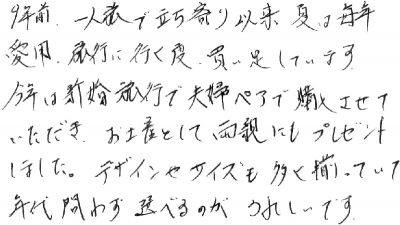 9年前、一人旅で立ち寄り以来、夏は毎年
愛用。旅行に行く度、買い足しています
今年は新婚旅行で夫婦ペアで購入させて
いただき、お土産として両親にもプレゼント
しました。デザインやサイズも多く揃っていて
年代問わず選べるのがうれしいです。